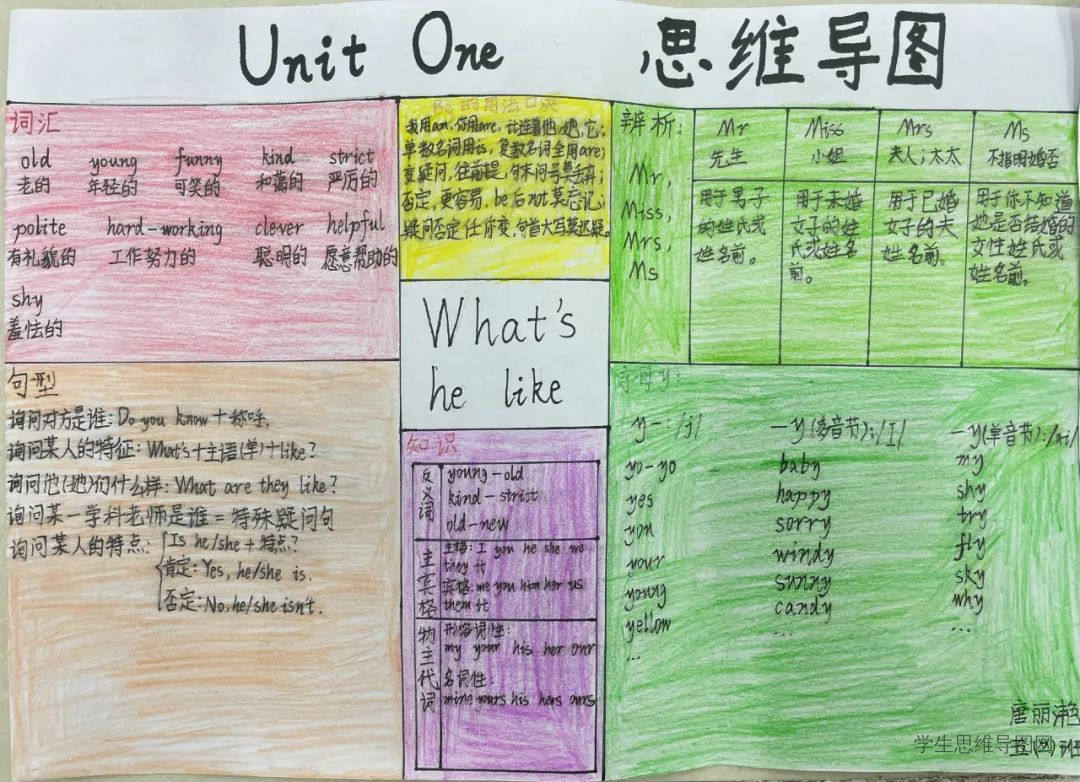 Unit One 思维导图
词汇
old young funny kind strict
老的 年轻的 可笑的 和蔼的 严厉的
polite hard-working clever helpful
有礼貌的 工作努力的 聪明的 愿意帮助的
shy
羞怯的
的用法口诀
我用am,你用are,is连着他,她,它;
单数名词用is,复数名词全用are;
变疑问,往前提,句末问号莫丢弃;
否定,更容易,be后not莫忘记,
疑问否定任你变,句首大写莫迟疑。
辨析:
Mr,
Miss,
Mrs,
Ms
Mr Miss Mrs Ms
先生 小姐 夫人;太太 不指明婚否
用于男子的姓氏或姓名前。
用于未婚女子的姓氏或姓名前。
用于已婚女子的夫姓名前。
用于你不知道她是否结婚的女性姓氏或姓名前。
What's
he like
句型
询问对方是谁:Do you know+称呼.
询问某人的特征:What's+主语(单)+like?
询问他(她)们什么样:What are they like?
询问某一学科老师是谁=特殊疑问句
询问某人的特点:Is he/she+特点?
肯定:Yes, he/she is.
否定:No, he/she isn't.
知识
反义词
young-old
kind-strict
old-new
主宾格
主格:I you he she we
they it
宾格:me you him her us
them it
物主代词
形容词性:
my your his her our
名词性:
mine yours his hers ours
字母y:
y-:/j/ -y(多音节):/I/ -y(单音节):/ai/
yo-yo baby my
yes happy shy
you sorry try
your windy fly
young sunny sky
yellow candy why
... ... ...
唐丽滟
五(四)班
学生思维导图网